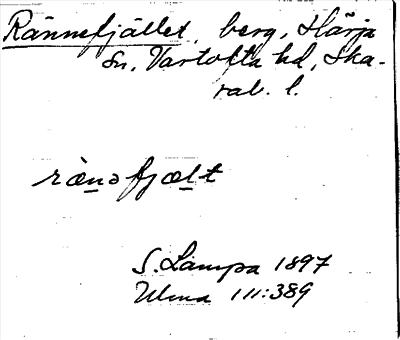 Rännefjället, berg, Härja
sn, Vartofta hd, Ska-
rab. l.
rænəfjælt
S. Lampa 1897
Ulma 111:389